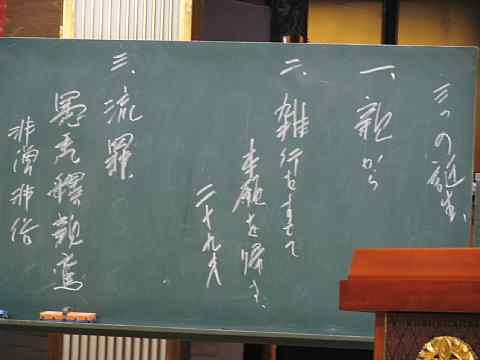 三つの誕生
一、親から
二、雑行をすてて
本願に帰す、
二十九才
三、流罪、
愚禿釋親鸞
非僧非俗